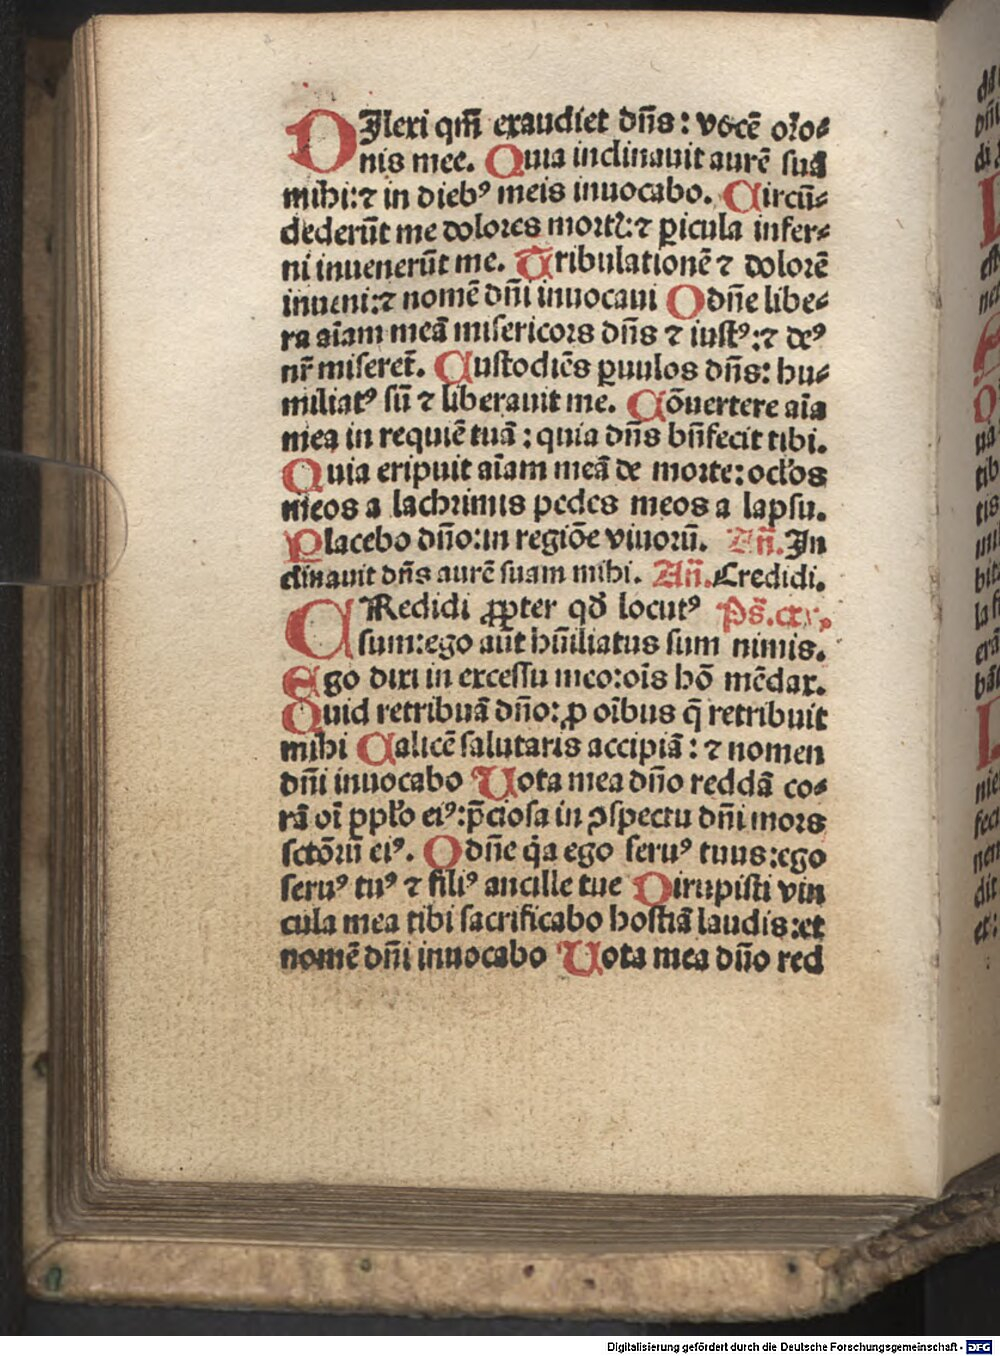 DIlexi qm̄ exaudiet dn̄s: vocē oꝛo⸗
nis mee. Quia inclinauit aurē suā
mihi:⁊ in diebꝰ meis inuocabo. Circū⸗
dederūt me dolores moꝛtꝭ:⁊ ꝑicula infer⸗
ni inuenerūt me. Tribulationē ⁊ dolorē
inueni:⁊ nomē dn̄i inuocaui O dn̄e libe⸗
ra aīam meā misericoꝛs dn̄s ⁊ iustꝰ:⁊ deꝰ
nr̄ miseret̄. Custodiēs ꝑuulos dn̄s: hu⸗
miliatꝰ sū ⁊ liberauit me. Cōuertere aīa
mea in requiē tuā : quia dn̄s bn̄fecit tibi.
Quia eripuit aīam meā de moꝛte: ocl̓os
meos a lachrimis pedes meos a lapsu.
Placebo dn̄o:in regiōe viuoꝛū. An̄. In
clinauit dn̄s aurē suam mihi. An̄. Credidi.
CRedidi ꝓpter qd̄ locutꝰ Ps̄. cxv.
sum:ego aūt hūiliatus sum nimis.
Ego dixi in excessu meo:oīs hō mēdax.
Quid retribuā dn̄o: ꝓ oībus q̄ retribuit
mihi Calicē salutaris accipiā : ⁊ nomen
dn̄i inuocabo Uota mea dn̄o reddā co⸗
rā oī ppl̓o eiꝰ:p̄ciosa in ꝯspectu dn̄i mors
sctōꝛū eiꝰ. O dn̄e qͣ ego seruꝰ tuus:ego
seruꝰ tuꝰ ⁊ filiꝰ ancille tue Dirupisti vin
cula mea tibi sacrificabo hostiā laudis:et
nomē dn̄i inuocabo Uota mea dn̄o red
Digitalisierung gefördert durch die Deutsche Forschungsgemeinschaft - DFG